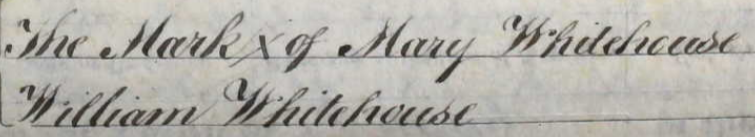 The Mark X of Mary Whitehouse
William Whitehouse